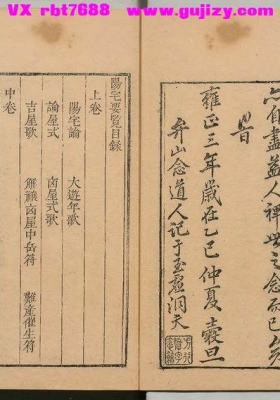 VX rbt7688 www.gujizy.com
宀有盡益人裨世之念而已矣
旹
雍正三年歲在乙巳仲夏穀旦
弁山念道人記于玉虛洞天
陽宅要覽目錄
上卷
陽宅論 大遊年歌
論屋式 凶屋式歌
吉星歌 解禳凶屋中岳符 難產催生符
中卷